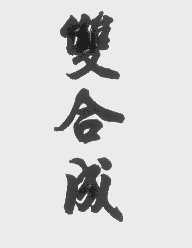 雙合成